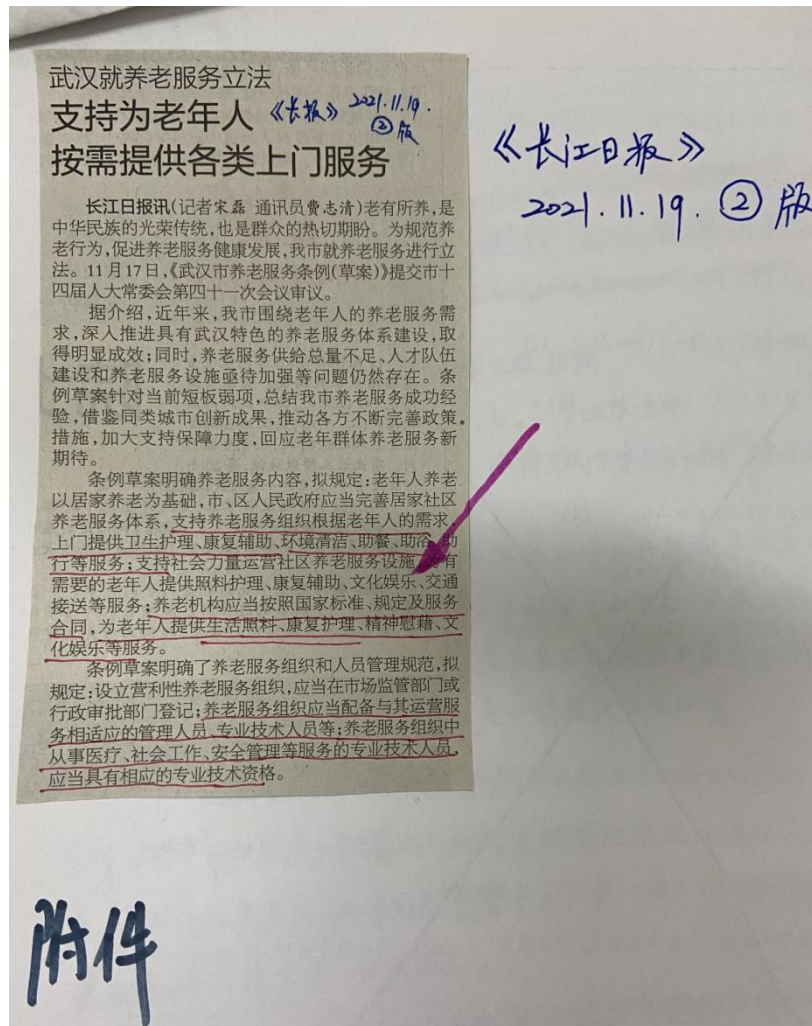 武汉就养老服务立法
支持为老年人 《长报》 2021.11.19.
②版
按需提供各类上门服务
《长江日报》
2021.11.19.②版
长江日报讯(记者宋磊 通讯员费志清)老有所养,是
中华民族的光荣传统,也是群众的热切期盼。为规范养
老行为,促进养老服务健康发展,我市就养老服务进行立
法。11月17日,《武汉市养老服务条例(草案)》提交市十
四届人大常委会第四十一次会议审议。
据介绍,近年来,我市围绕老年人的养老服务需
求,深入推进具有武汉特色的养老服务体系建设,取
得明显成效;同时,养老服务供给总量不足、人才队伍
建设和养老服务设施亟待加强等问题仍然存在。条
例草案针对当前短板弱项,总结我市养老服务成功经
验,借鉴同类城市创新成果,推动各方不断完善政策
措施,加大支持保障力度,回应老年群体养老服务新
期待。
条例草案明确养老服务内容,拟规定:老年人养老
以居家养老为基础,市、区人民政府应当完善居家社区
养老服务体系,支持养老服务组织根据老年人的需求,
上门提供卫生护理、康复辅助、环境清洁、助餐、助浴、助
行等服务;支持社会力量运营社区养老服务设施,为有
需要的老年人提供照料护理、康复辅助、文化娱乐、交通
接送等服务;养老机构应当按照国家标准、规定及服务
合同,为老年人提供生活照料、康复护理、精神慰藉、文
化娱乐等服务。
条例草案明确了养老服务组织和人员管理规范,拟
规定:设立营利性养老服务组织,应当在市场监管部门或
行政审批部门登记;养老服务组织应当配备与其运营服
务相适应的管理人员、专业技术人员等;养老服务组织中
从事医疗、社会工作、安全管理等服务的专业技术人员,
应当具有相应的专业技术资格。
附件